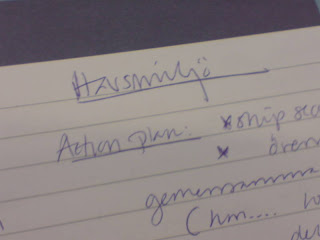 Havsmiljö
Action plan: * ship sec
*
gemensamma
(hm....